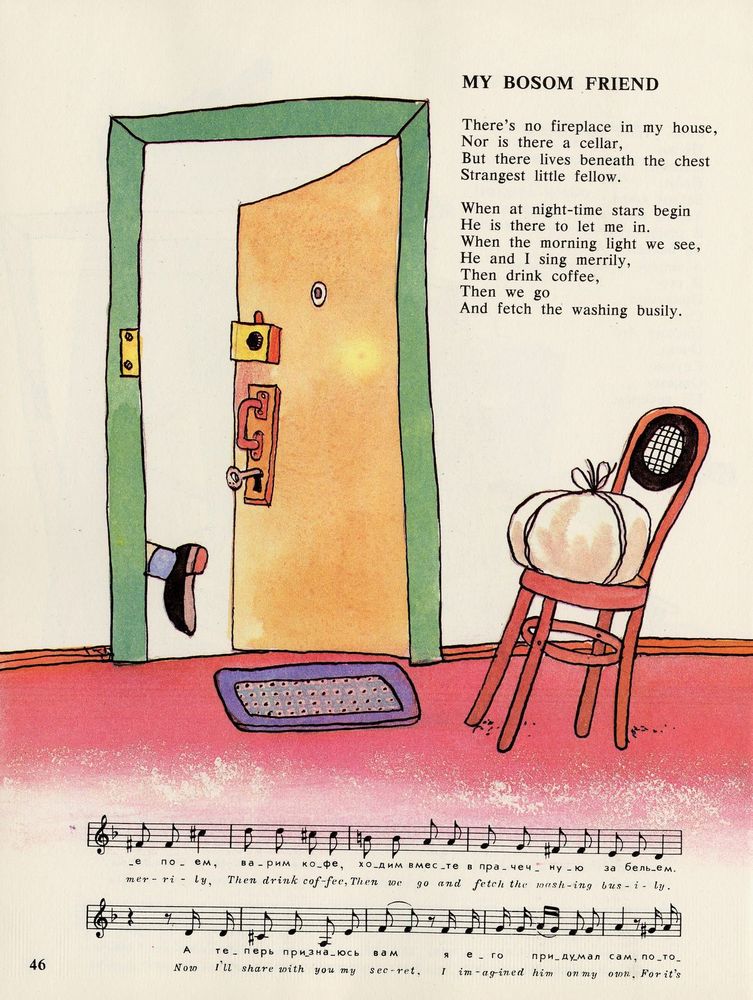 MY BOSOM FRIEND
There's no fireplace in my house,
Nor is there a cellar,
But there lives beneath the chest
Strangest little fellow.
When at night-time stars begin
He is there to let me in.
When the morning light we see,
He and I sing merrily,
Then drink coffee,
Then we go
And fetch the washing busily.
_е по_ем, ва_рим ко_фе, хо_дим вмес_те в пра_чеч_ну_ю за бель_ем.
mer-ri-ly, Then drink cof-fee, Then we go and fetch the wash-ing bus-i-ly.
А те_перь при_зна_юсь вам я е_го при_ду_мал сам, по_то_
Now I'll share with you my sec-ret, I im-ag-ined him on my own. For it's
46